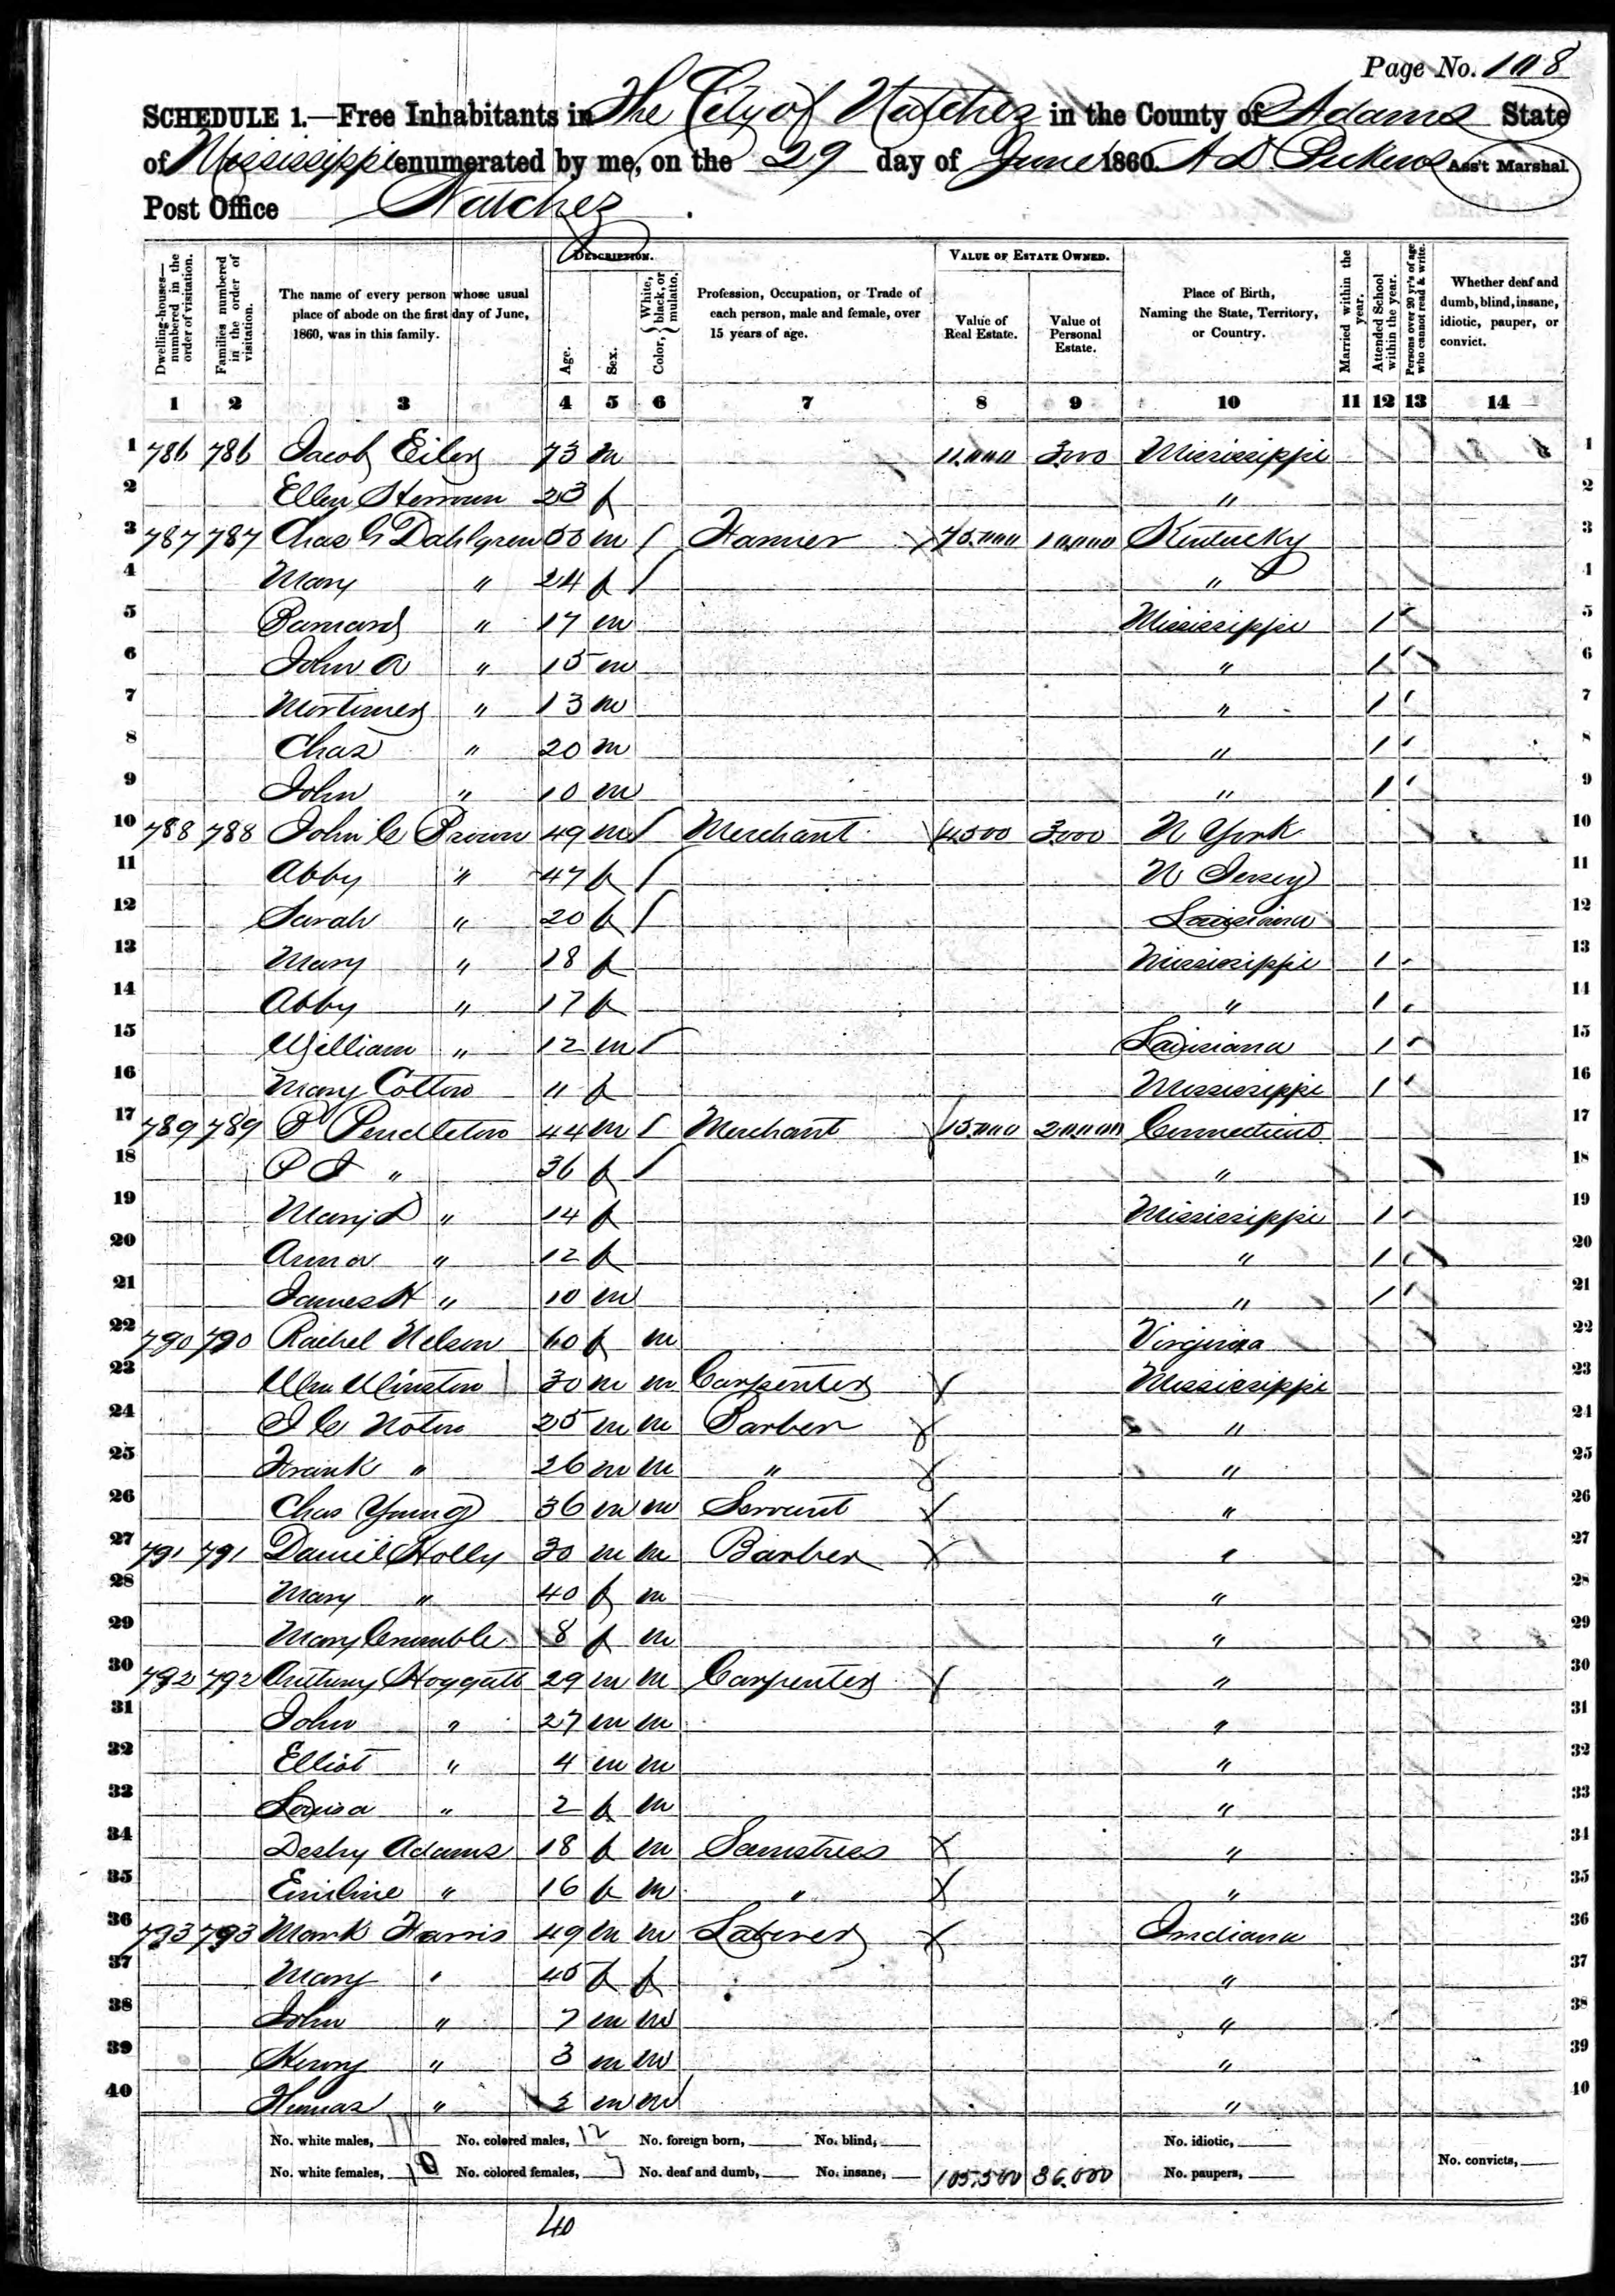 Page No. 108
SCHEDULE 1.—Free Inhabitants in The City of Natchez in the County of Adams State
of Mississippi enumerated by me, on the 29 day of June 1860. A D Pickens Ass't Marshal.
Post Office Natchez.
Dwelling-houses—numbered in the order of visitation.
Families numbered in the order of visitation.
The name of every person whose usual place of abode on the first day of June, 1860, was in this family.
DESCRIPTION.
Age.
Sex.
Color, { White, black, or mulatto.
Profession, Occupation, or Trade of each person, male and female, over 15 years of age.
VALUE OF ESTATE OWNED.
Value of Real Estate.
Value of Personal Estate.
Place of Birth, Naming the State, Territory, or Country.
Married within the year.
Attended School within the year.
Persons over 20 yr's of age who cannot read & write.
Whether deaf and dumb, blind, insane, idiotic, pauper, or convict.
1 2 3 4 5 6 7 8 9 10 11 12 13 14
1 786 786 Jacob Eiler 73 m 11.000 3.000 Mississippi 1
2 Ellen 23 f " 2
3 787 787 Chas G Dahlgren 50 m / Farmer 75.000 10.000 Kentucky 3
4 Mary " 24 f / " 4
5 Barnard " 17 m Mississippi 1 5
6 John A " 15 m " 1 6
7 Mortimer " 13 m " 1 7
8 Chas " 20 m " 1 8
9 John " 10 m " 1 9
10 788 788 John C Brown 49 m / Merchant 4.500 3.000 N York 10
11 Abby " 47 f / N Jersey 11
12 Sarah " 20 f / Louisiana 12
13 Mary " 18 f Mississippi 1 13
14 Abby " 17 f " 1 14
15 William " 12 m / Louisiana 1 15
16 Mary Cotton 11 f Mississippi 1 16
17 789 789 Pendleton 44 m / Merchant 15.000 20.000 Connecticut 17
18 P J " 36 f / " 18
19 Mary D " 14 f Mississippi 1 19
20 Anna " 12 f " 1 20
21 James H " 10 m " 1 21
22 790 790 Rachel Nelson 60 f m Virginia 22
23 Wm Winston 30 m m Carpenter Mississippi 23
24 J C Noten 25 m m Barber " 24
25 Frank " 26 m m " " 25
26 Chas Young 36 m m Servant " 26
27 791 791 Daniel Holly 30 m m Barber " 27
28 Mary " 40 f m " 28
29 Mary Crumble 8 f m " 29
30 792 792 Anthony Hoggatt 29 m m Carpenter " 30
31 John " 27 m m " 31
32 Elliot " 4 m m " 32
33 Louisa " 2 f m " 33
34 Adams 18 f m Samstress " 34
35 Emiline " 16 f m " " 35
36 793 793 Mark Harris 49 m m Laborer Indiana 36
37 Mary " 45 f f " 37
38 John " 7 m m " 38
39 Henry " 3 m m " 39
40 " m m " 40
No. white males, 11 No. colored males, 12 No. foreign born, No. blind, No. idiotic,
No. white females, 10 No. colored females, 7 No. deaf and dumb, No. insane, 105.500 36.000 No. paupers, No. convicts,
40